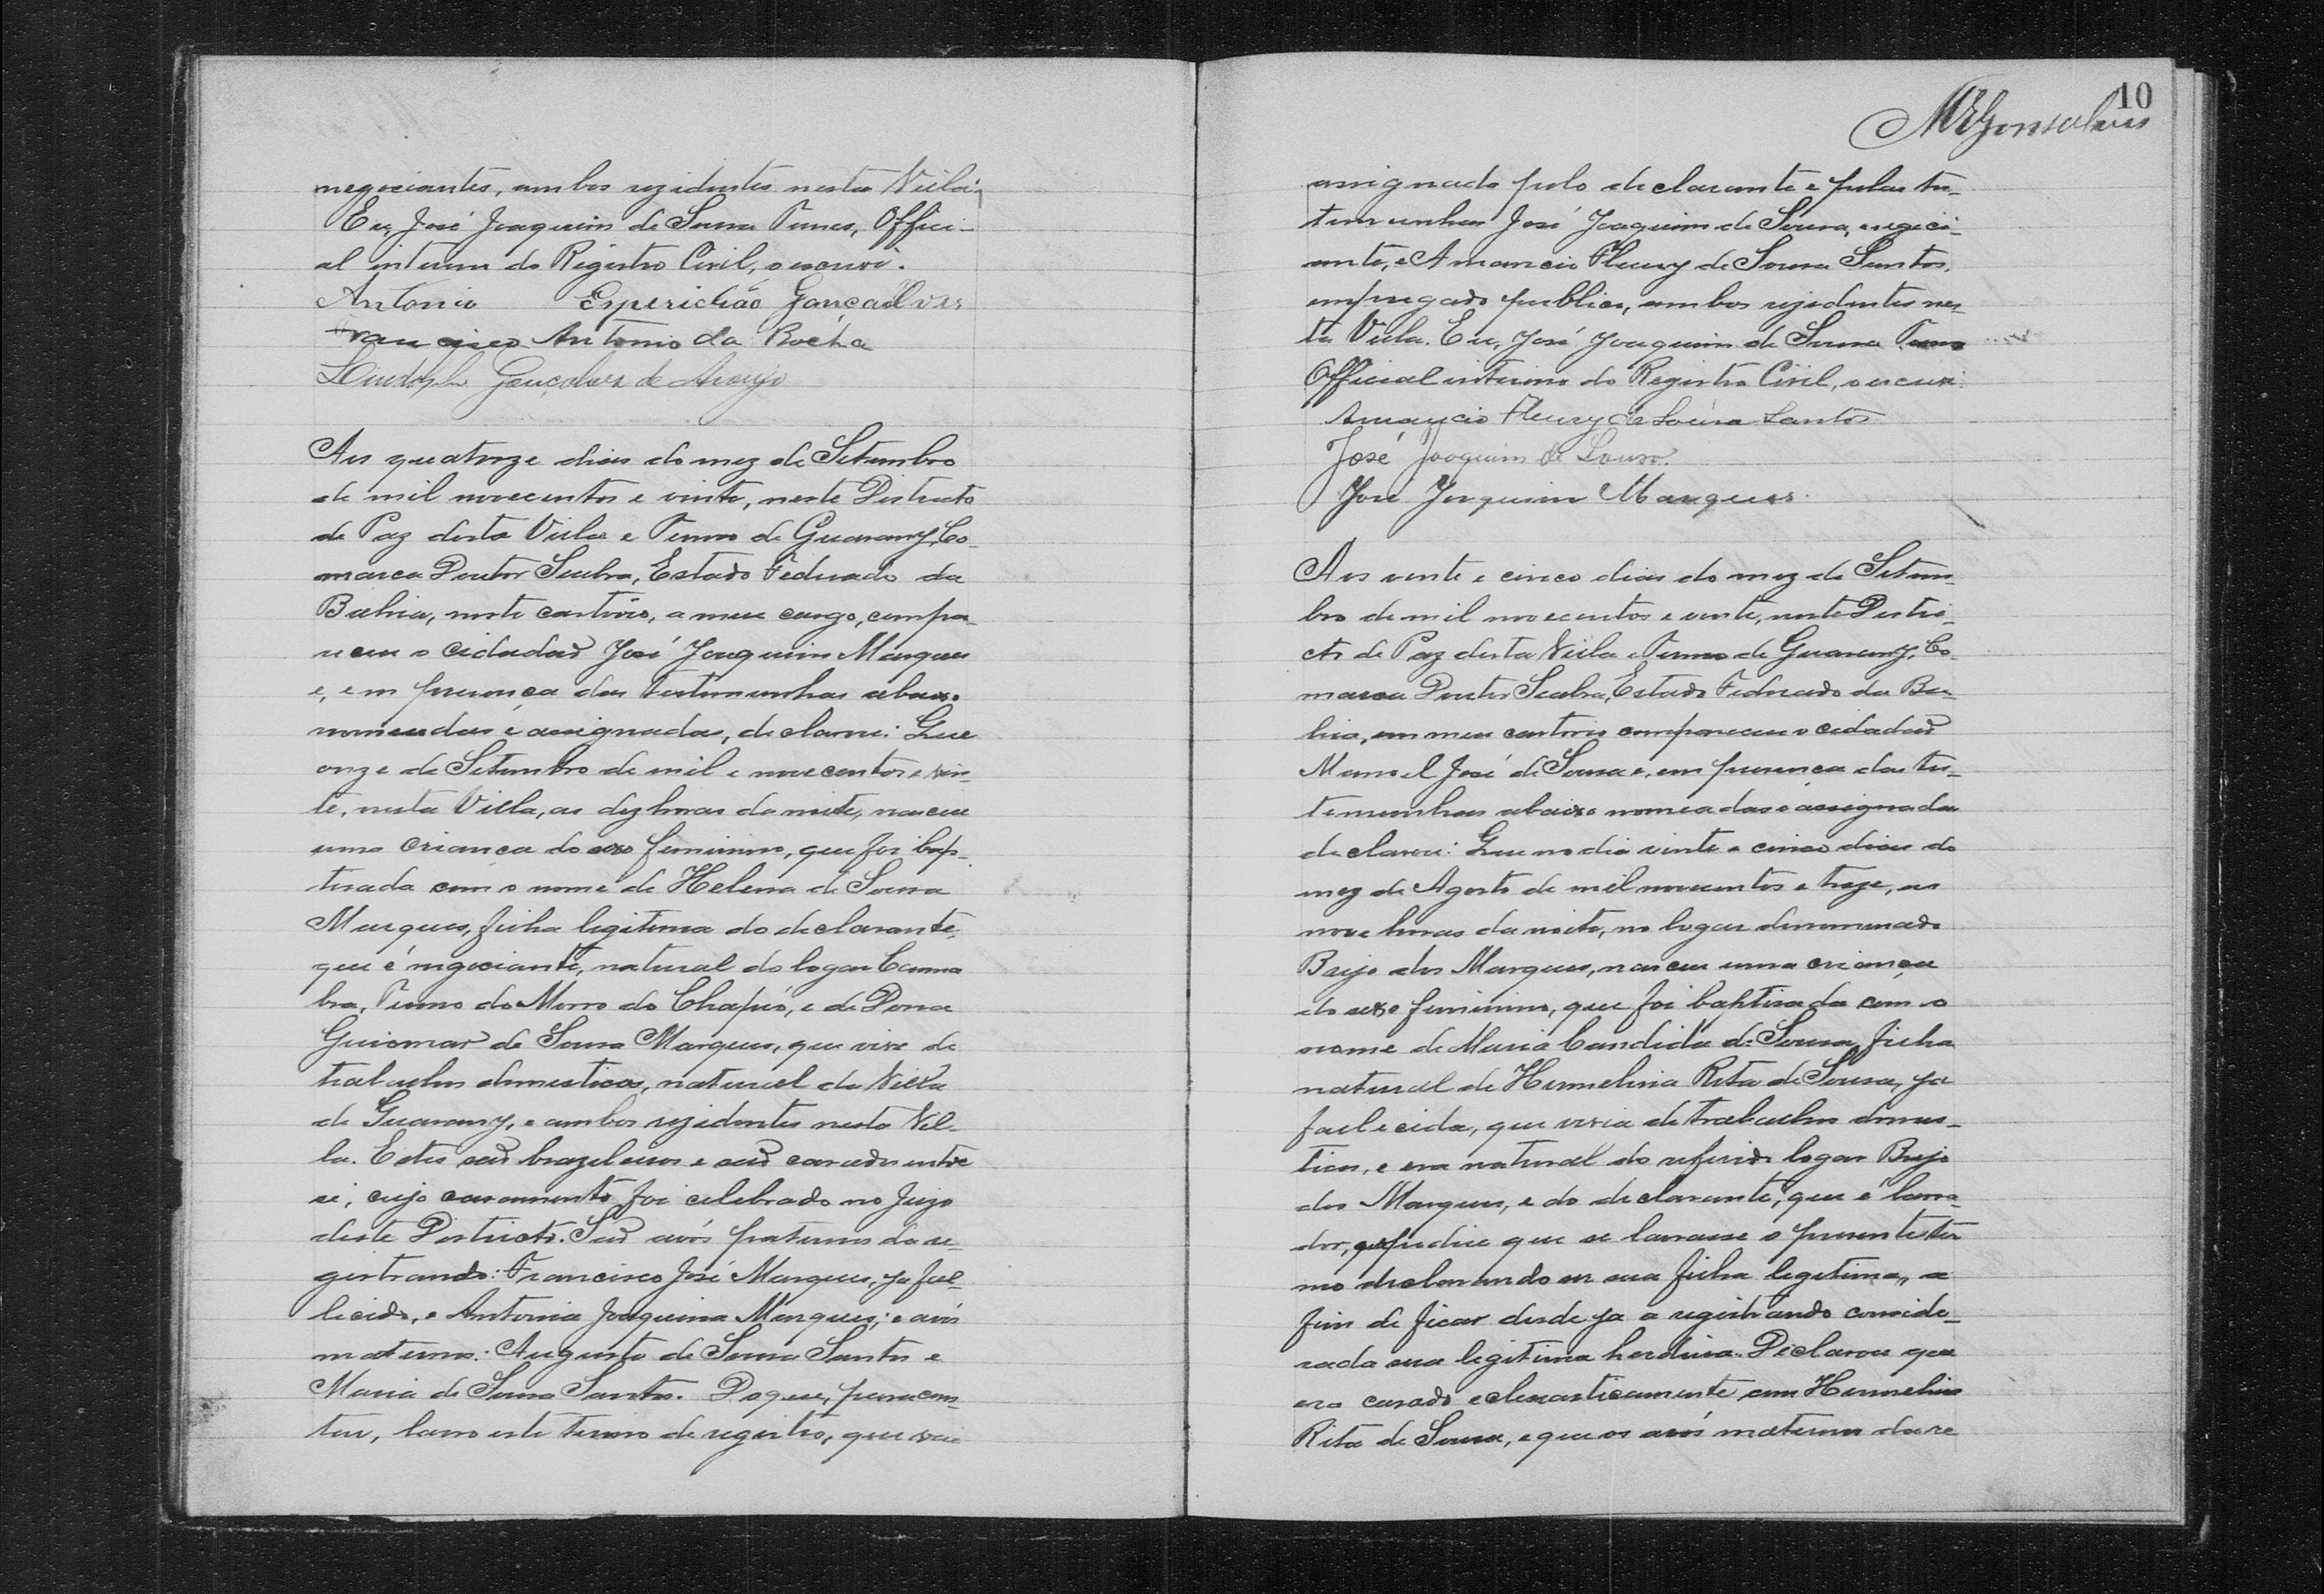 negociantes, ambos rezidentes nesta Villa;
Eu, José Joaquim de Sousa Funes, Offici-
al interino do Registro Civil, o escrevi.
Antonio Esperidião Gonçalves
Francisco Antonio da Rocha
Lindolpho Gonçalves de Araujo
Aos quatorze dias do mez de Setembro
de mil novecentos e vinte, neste Districto
de Paz desta Villa e Termo de Guarany, Co-
marca Doutor Seabra, Estado Federado da
Bahia, neste cartorio, a meu cargo, compa-
receu o cidadaõ José Joaquim Marques
e, em presença das testemunhas abaixo
nomeadas e assignadas, declarou: Que
onze de Setembro de mil e novecentos e vin-
te, nesta Villa, as dez horas da noite, nasceu
uma criança do sexo feminino, que foi bap-
tisada com o nome de Helena de Sousa
Marques, filha legitima do declarante,
que é negociante, natural do logar Canna
bra, Termo do Morro do Chapéo, e de Dona
Guiomar de Sousa Marques, que vive de
trabalhos domesticos, natural da Villa
de Guarany, e ambos rezidentes nesta Vil-
la. Estes saõ brazileiros e saõ casados entre
si, cujo casamento foi celebrado no Juizo
deste Districto. Saõ avós paternos da re-
gistrando: Francisco José Marques, ja fal-
lecido, e Antonia Joaquina Marques; e avós
maternos: Augusto de Sousa Santos e
Maria de Sousa Santos. Do que, para cons-
tar, lavro este termo de registro, que vai
10
MRGonsalves
assignado pelo declarante e pelas tes-
temunhas José Joaquim de Sousa, negoci-
ante, e Amancio Fleury de Sousa Santos,
empregado publico, ambos rezidentes nes-
ta Villa. Eu, José Joaquim de Sousa Funes
Official interino do Registro Civil, o escrevi.
Amancio Fleury de Sousa Santos
José Joaquim de Sousa.
José Joaquim Marques.
Aos vinte e cinco dias do mez de Setem-
bro de mil novecentos e vinte, neste Distri-
cto de Paz desta Villa e Termo de Guarany, Co-
marca Doutor Seabra, Estado Federado da Ba-
hia, em meu cartorio compareceu o cidadaõ
Manoel José de Sousa e, em presença das tes-
temunhas abaixo nomeadas e assignadas
declarou: Que no dia vinte e cinco dias do
mez de Agosto de mil novecentos e treze, as
nove horas da noite, no logar denominado
Brejo dos Marques, nasceu uma criança
do sexo feminino, que foi baptisada com o
nome de Maria Candida de Sousa, filha
natural de Hermelina Rita de Sousa, ja
fallecida, que vivia de trabalhos domes-
ticos, e era natural do referido logar Brejo
dos Marques, e do declarante, que é lavra-
dor, que pedia que se lavrasse o presente ter
mo declarando ser sua filha legitima, a
fim de ficar desde ja a registrando conside-
rada sua legitima herdeira. Declarou que
era casado eclesiasticamente com Hermelina
Rita de Sousa, e que os avós maternos da re